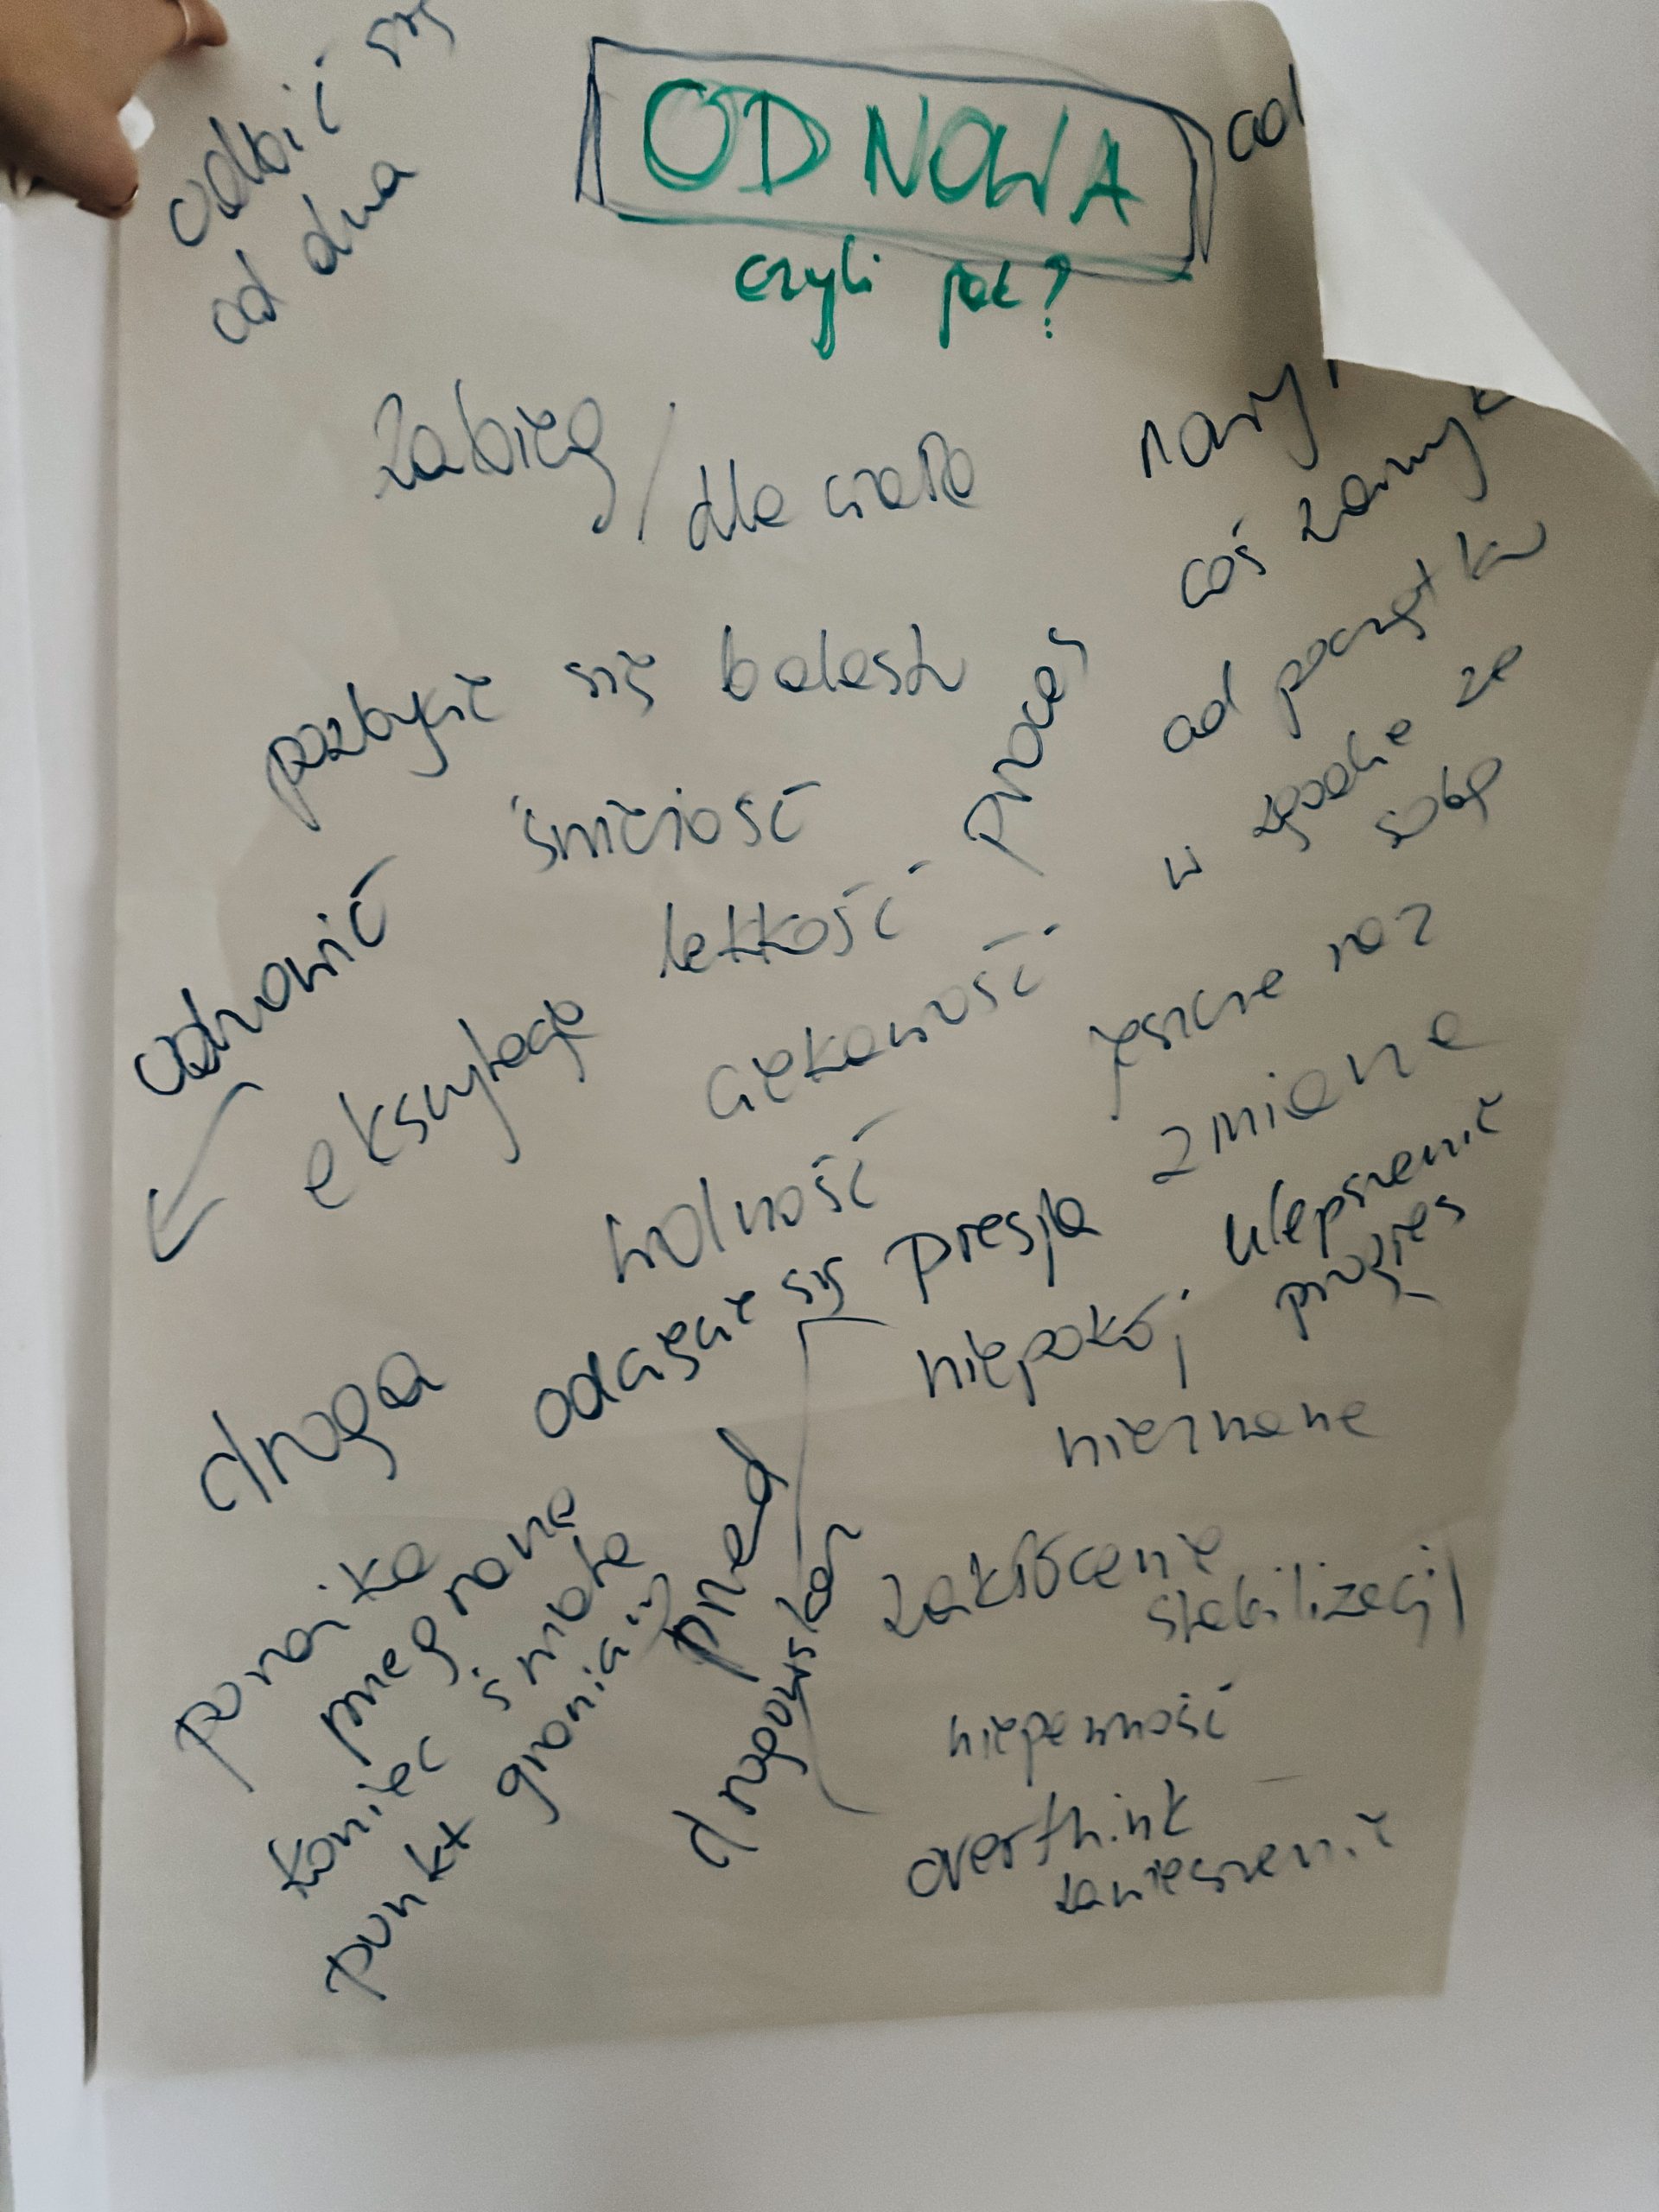 odbić się
od dna
OD NOWA
czyli jak?
zabieg / dla ciała
nowy
coś zamyk
pozbycie się balastu
proces
od początku
w zgodzie ze
sobą
śmiałość
lekkość
odnowić
ekscytacja
ciekawość
jeszcze raz
zmiana
wolność
presja
ulepszenie
progres
odcięcie się
niepokój
nieznane
droga
porażka
przegrana
koniec świata
punkt graniczny
przed
drogowskaz
zakłócenie
stabilizacji
niepewność
overthink
zawieszenie